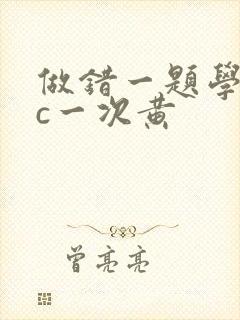 做錯一題學
c一次黄
曾亮亮